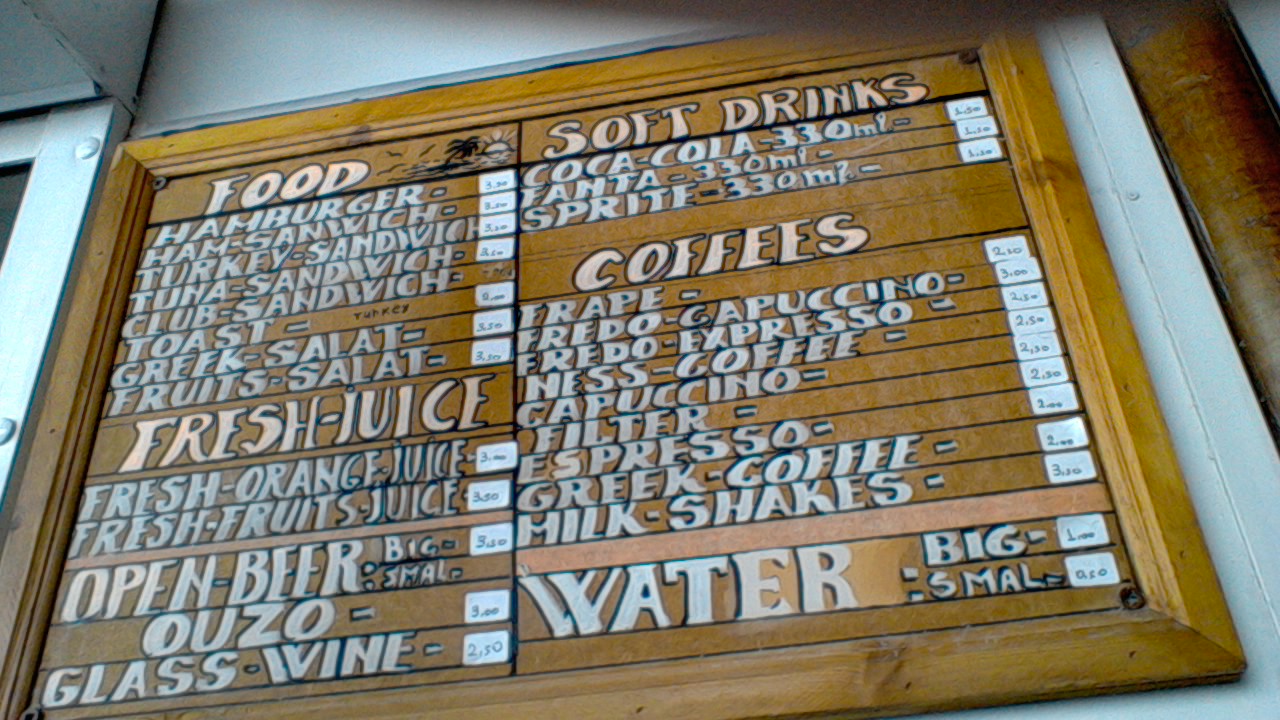 FOOD
HAMBURGER - 3,50
HAM-SANWICH- 3,50
TURKEY-SANDWICH 3,50
TUNA-SANDWICH- 3,50
CLUB-SANDWICH-
TOAST - TURKEY 2,00
GREEK-SALAT- 3,50
FRUITS-SALAT- 3,50
FRESH-JUICE
FRESH-ORANGE-JUICE- 3,00
FRESH-FRUITS-JUICE- 3,50
OPEN-BEER: BIG- 3,50
SMAL-
OUZO - 3,00
GLASS-WINE- 2,50
SOFT DRINKS
COCA-COLA-330ml- 1.50
FANTA-330ml- 1.50
SPRITE-330ml.- 1.50
COFFEES
FRAPE - 2,50
FREDO-CAPUCCINO- 3,00
FREDO-EXPRESSO - 2,50
NESS-COFFEE - 2,50
CAPUCCINO- 2,50
FILTER - 2,50
ESPRESSO- 2,00
GREEK-COFFEE - 2,00
MILK-SHAKES- 3,50
WATER: BIG- 1,00
SMAL- 0,50